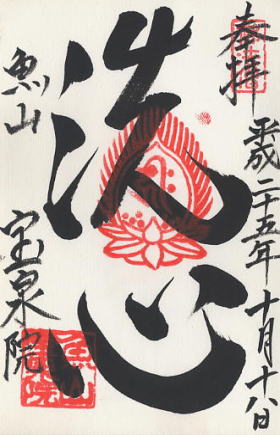 奉拝
平成二十五年十月十八日
洗心
魚山
宝泉院